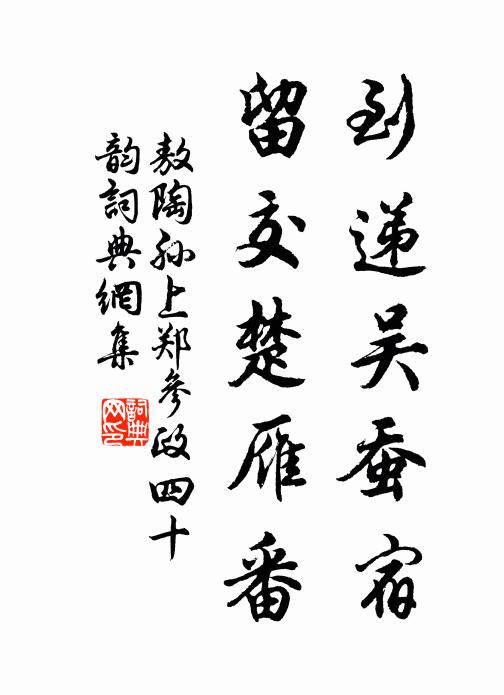 到递吴蚕宿
留交楚雁番
敖陶孙上郑参政四十
韵詞典網集
詞典网印